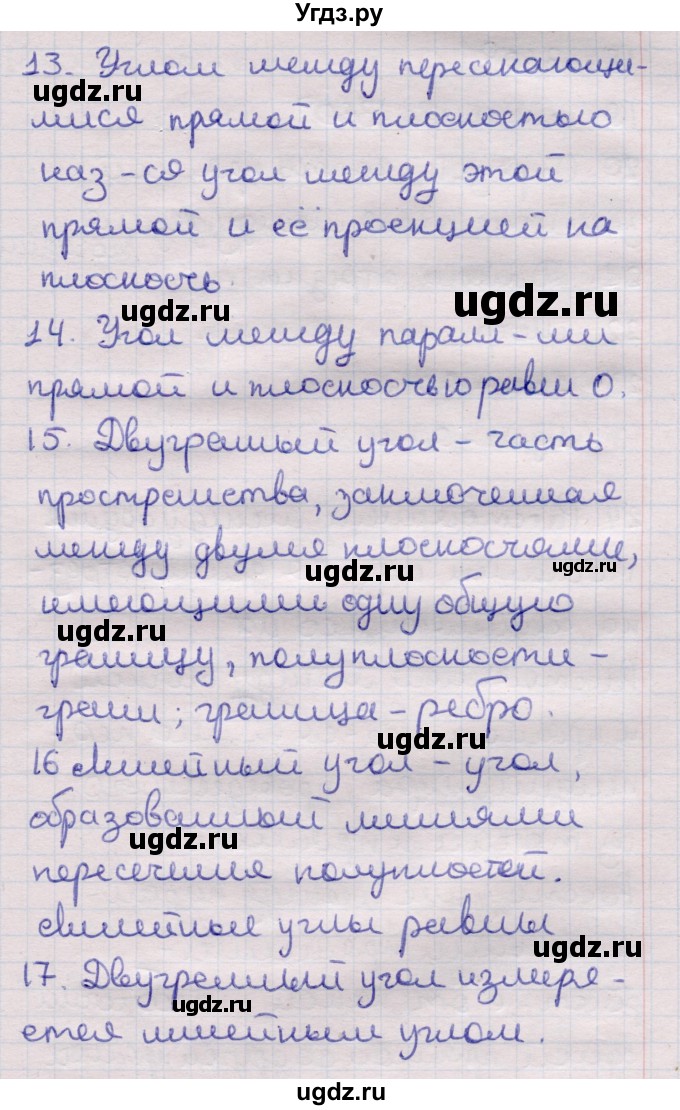 Угдз.ру
13. Углом между пересекающи-
ugdz.ru
мися прямой и плоскостью
наз-ся угол между этой
прямой и её проекцией на
плоскость
ugdz.ru
ugdz.ru
14. Угол между паралл-ми
прямой и плоскостью равен 0.
15. Двугранный угол - часть
пространства, заключенная
между двумя плоскостями,
ugdz.ru
ugdz.ru
имеющими одну общую
ugdz.ru
границу, полуплоскости -
грани; граница - ребро.
ugdz.ru
16 Линейный угол - угол,
образованный линиями
ugdz.ru
пересечения полуплостей.
Линейные углы равны
ugdz.ru
17. Двугранный угол измеря-
ugdz.ru
ется линейным углом.
ugdz.ru